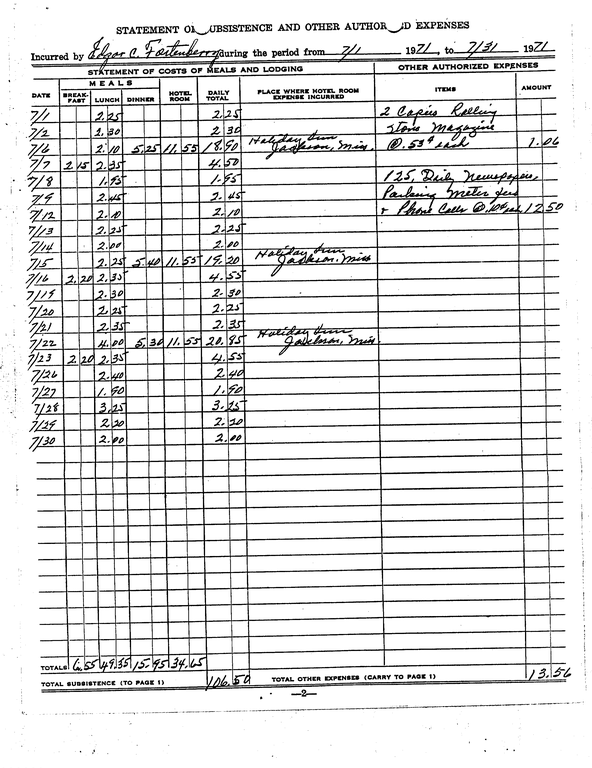 STATEMENT OF SUBSISTENCE AND OTHER AUTHOR ED EXPENSES
Incurred by Edgar C. Fortenberry during the period from 7/1 1971, to 7/31 1971
STATEMENT OF COSTS OF MEALS AND LODGING OTHER AUTHORIZED EXPENSES
MEALS
DATE BREAK-FAST LUNCH DINNER HOTEL ROOM DAILY TOTAL PLACE WHERE HOTEL ROOM EXPENSE INCURRED ITEMS AMOUNT
7/1 2.25 2.25 2 Copies Rolling
7/2 2.30 2 30 Stone Magazine
7/6 2.10 5.25 11.55 18.90 Holiday Inn Jackson, Miss. @ .53¢ each 1.06
7/7 2 15 2.35 4.50
7/8 1.95 1.95 125, Daily Newspapers,
7/9 2.45 2.45 Parking Meter
7/12 2.10 2.10 + Phone Calls @ .10¢ ea. 12.50
7/13 2.25 2.25
7/14 2.00 2.00
7/15 2.25 5.40 11.55 19.20 Holiday Inn Jackson, Miss
7/16 2.20 2.35 4.55
7/19 2.30 2.30
7/20 2.25 2.25
7/21 2.35 2.35
7/22 4.00 5.30 11.55 20.85 Holiday Inn Jackson, Miss
7/23 2 20 2.35 4.55
7/26 2.40 2.40
7/27 1.90 1.90
7/28 3.25 3.25
7/29 2.20 2.20
7/30 2.00 2.00
TOTALS 6.55 49.35 15.95 34.65
TOTAL SUBSISTENCE (TO PAGE 1) 106.50 TOTAL OTHER EXPENSES (CARRY TO PAGE 1) 13.56
—2—